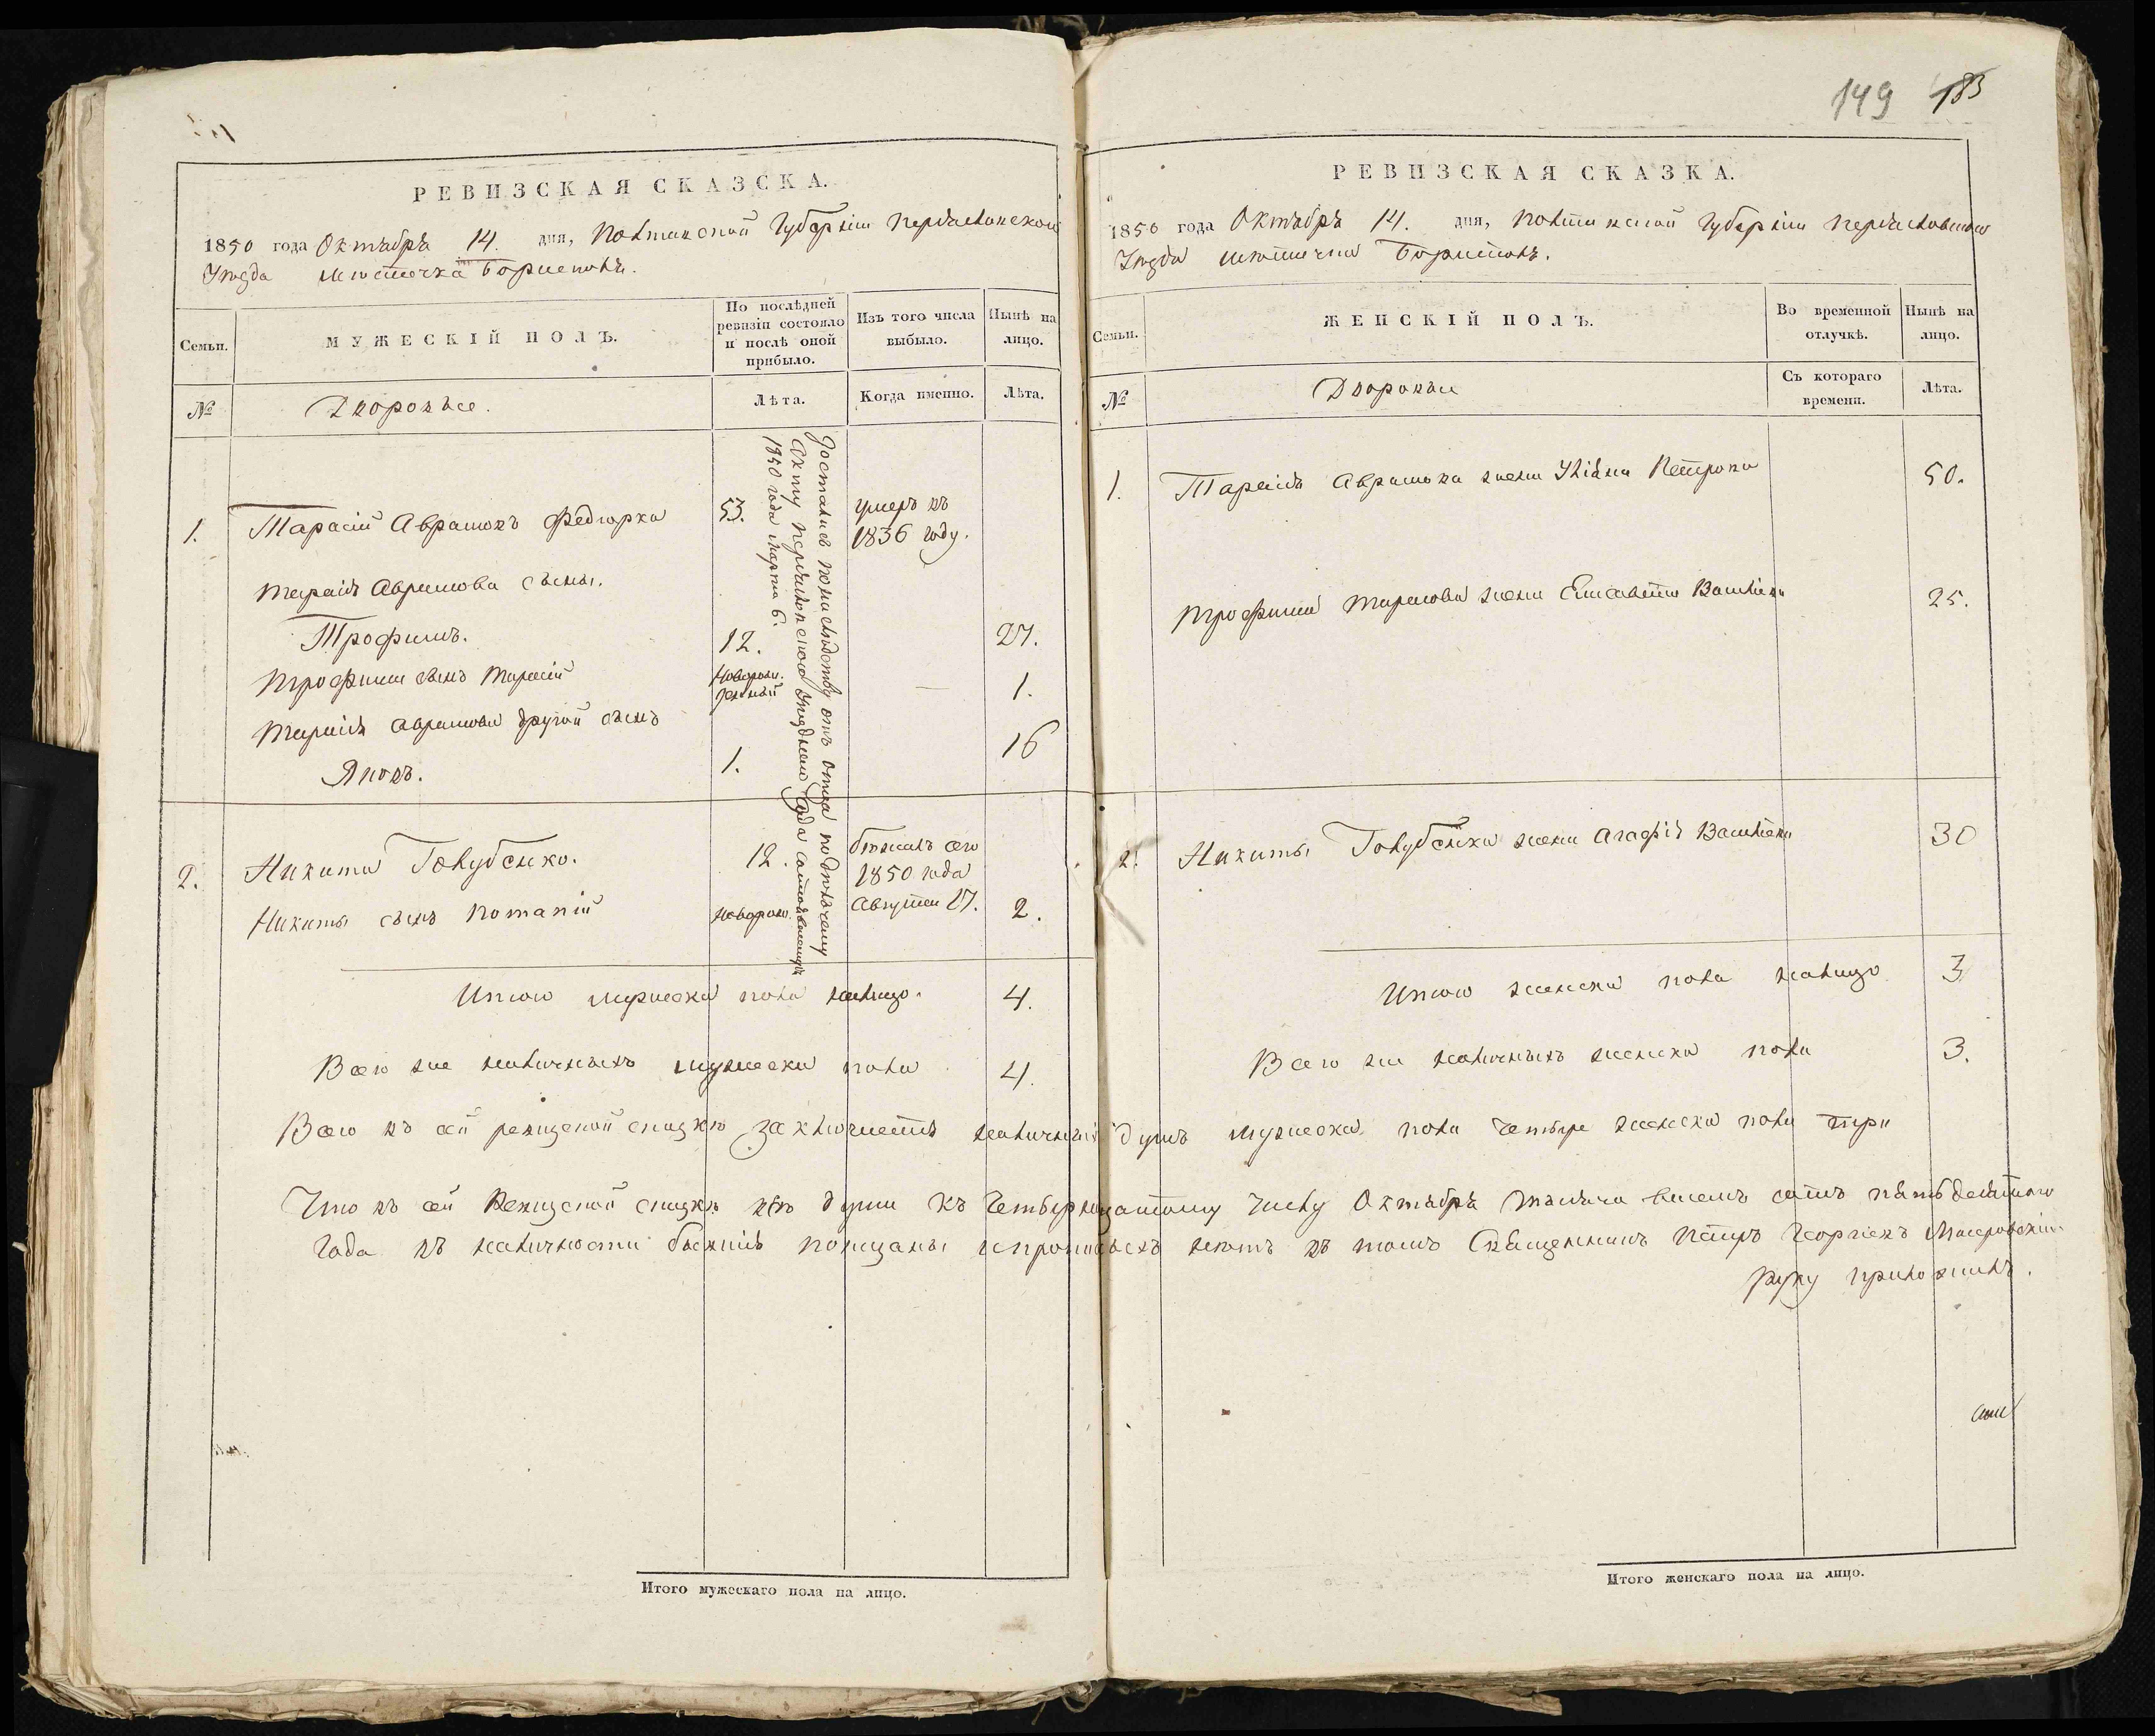 149 183
РЕВИЗСКАЯ СКАЗСКА.
1850 года Октября 14. дня, Полтавской Губерніи Переяславской
Уѣзда мѣстечка Борисполя.
Семьи.
МУЖЕСКІЙ ПОЛЪ.
По послѣдней
ревизіи состояло
и послѣ оной
прибыло.
Изъ того числа
выбыло.
Нынѣ на
лицо.
№
Дворовые.
Лѣта.
Когда именно.
Лѣта.
Достались по наслѣдству отъ отца по дѣльчему
Акту Переяславскаго Уѣзднаго Суда
1850 года Марта 6.
1. Тарасій Аврамовъ Федорка 53. умеръ въ
1836 году.
Тарасія Аврамова сыны.
Трофимъ. 12. 27.
Трофима сынъ Тарасій Новорож-
денный — 1.
Тарасія Аврамова другой сынъ
Яковъ. 1. 16
2. Никита Голубенко. 12. бѣжалъ сего
1850 года
Никиты сынъ Потапій новорож. Августа 27. 2.
Итого мужеска пола налицо. 4.
Всего же наличныхъ мужеска пола 4.
РЕВИЗСКАЯ СКАЗКА.
1850 года Октября 14. дня, Полтавской Губерніи Переяславскаго
Уѣзда мѣстечка Борисполя.
Семьи.
ЖЕНСКІЙ ПОЛЪ.
Во временной
отлучкѣ.
Нынѣ на
лицо.
№
Дворовые
Съ котораго
времени.
Лѣта.
1. Тарасія Аврамова жена Уліяна Петрова 50.
Трофима Тарасова жена Елисавета Васильева 25.
2. Никиты Голубенка жена Агафія Васильева 30
Итого женска пола налицо 3
Всего же наличныхъ женска пола 3.
Всего въ сей ревизской сказкѣ заключается наличныхъ душъ мужеска пола четыре женска пола три
Что въ сей Ревизской сказкѣ всѣ души къ четырнадцатому числу Октября тысяча восемъ сотъ пятьдесятаго
года въ наличности бывшія показаны и прописныхъ нѣтъ въ томъ Священникъ Петръ Георгіевъ
руку приложилъ.
Итого мужескаго пола на лицо.
Итого женскаго пола на лицо.